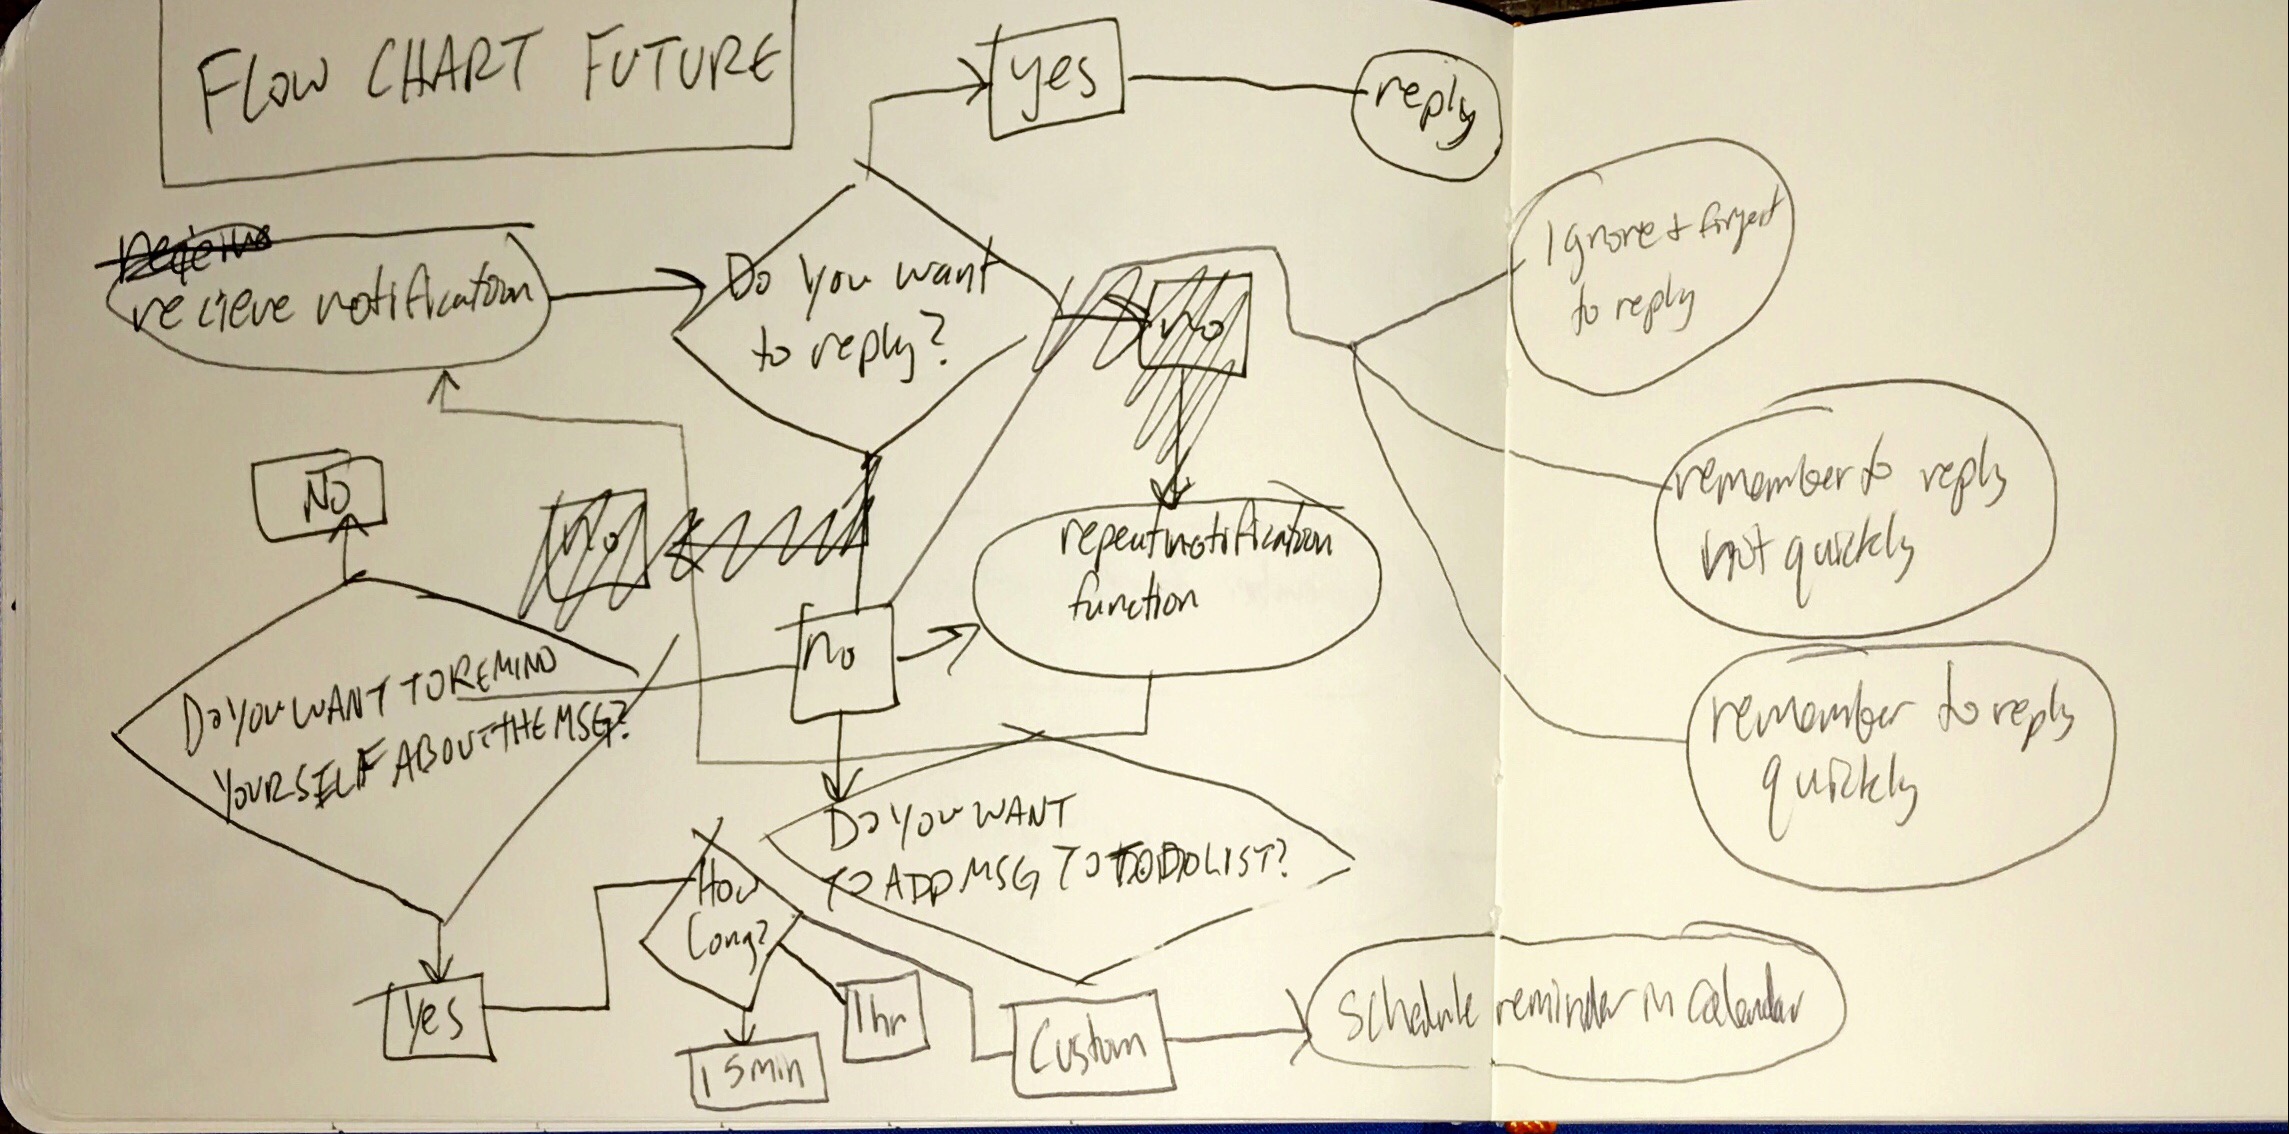 FLOW CHART FUTURE
yes
reply
recieve
recieve notification
Do you want
to reply?
no
Ignore + forget
to reply
No
no
repeat notification
function
remember to reply
not quickly
no
DO YOU WANT TO REMIND
YOURSELF ABOUT THE MSG?
remember to reply
quickly
DO YOU WANT
TO ADD MSG TO TODO LIST?
How
Long?
Yes
1hr
15min
Custom
Schedule reminder in Calendar